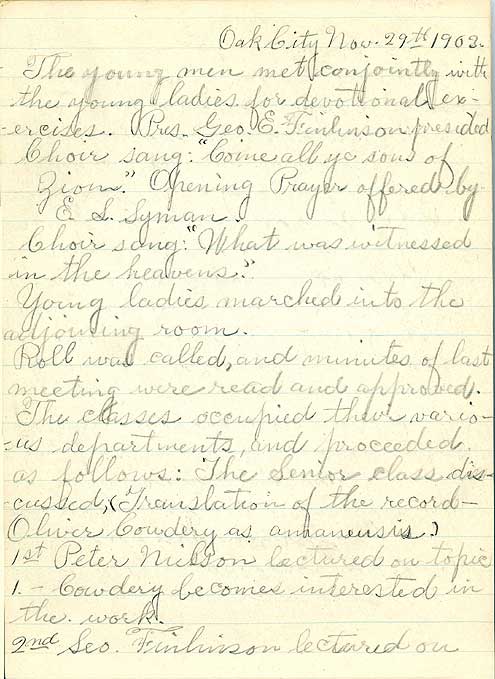 Oak City Nov. 29th 1903.
The young men met conjointly with
the young ladies for devotional ex-
-ercises. Pres. Geo. E. Finlinson presided
Choir sang: "Come all ye sons of
Zion." Opening Prayer offered by
E. L. Lyman.
Choir sang: "What was witnessed
in the heavens."
Young ladies marched into the
adjoining room.
Roll was called, and minutes of last
meeting were read and approved.
The classes occupied their vario-
-us departments, and proceeded
as follows: The Senior class dis-
-cussed, (Translation of the record-
Oliver Cowdery as amanensis.)
1st Peter Nielson lectured on topic
1. - Cowdery becomes interested in
the work.
2nd Geo. Finlinson lectured on